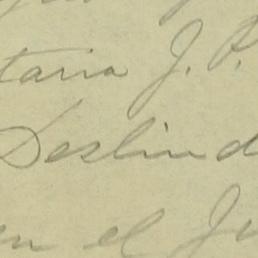 taria J. P.
Deslind
en el Ju